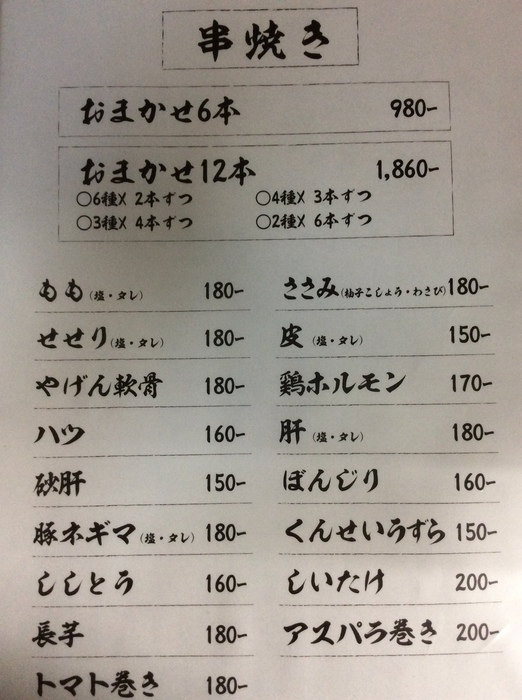 串焼き
おまかせ6本 980-
おまかせ12本 1,860-
○6種X 2本ずつ ○4種X 3本ずつ
○3種X 4本ずつ ○2種X 6本ずつ
もも(塩・タレ) 180-
せせり(塩・タレ) 180-
やげん軟骨 180-
ハツ 160-
砂肝 150-
豚ネギマ(塩・タレ) 180-
ししとう 160-
長芋 180-
トマト巻き 180-
ささみ(柚子こしょう・わさび) 180-
皮(塩・タレ) 150-
鶏ホルモン 170-
肝(塩・タレ) 180-
ぼんじり 160-
くんせいうずら 150-
しいたけ 200-
アスパラ巻き 200-